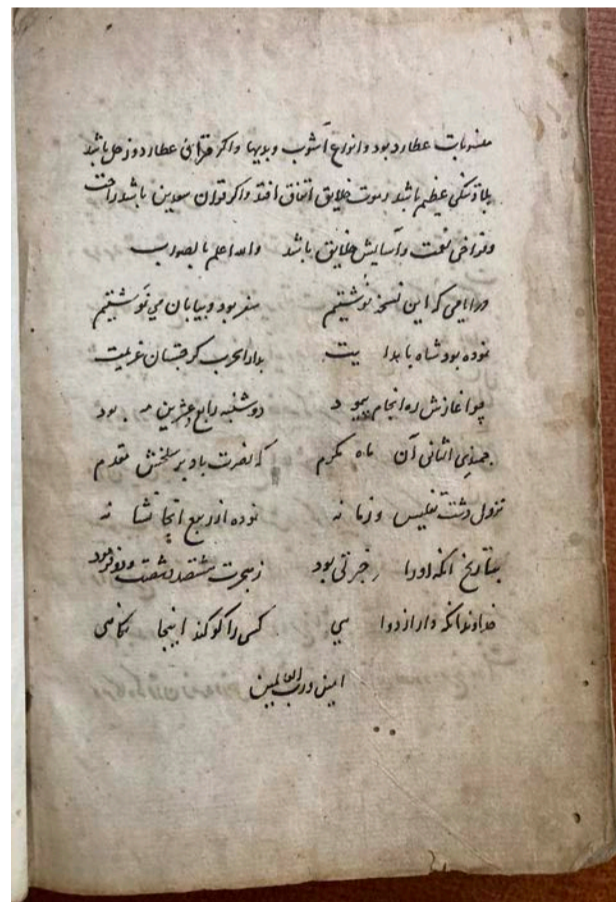 منسوبات عطارد بود وانواع آشوب وبدیها واکر قران عطارد وزحل باشد
بلا وتنکی عظیم باشد وموت خلایق اتفاق افتد واکر قران سعدین باشد راحت
وفراخی نعمت وآسایش خلایق باشد والله اعلم بالصواب
در ایامی که این نسخه نوشتیم سفر بود وبیابان می نوشتیم
نموده بود شاه با بدایت بدار الحرب کرجستان عزیمت
چو اغازش ره انجام پیمود دوشنبه رابع عشرین مه بود
جمذی الثانی آن ماه مکرم که نصرت باد بر سلخش مقدم
نزول دشت تفلیس وزمانه نموده از ربیع انجا نشانه
بتاریخ انکه اورا زهجرت ششصد وشصت ودو
خداوندا نکه دار از کسی را کو کند اینجا نکاهی
امین ورب العالمین